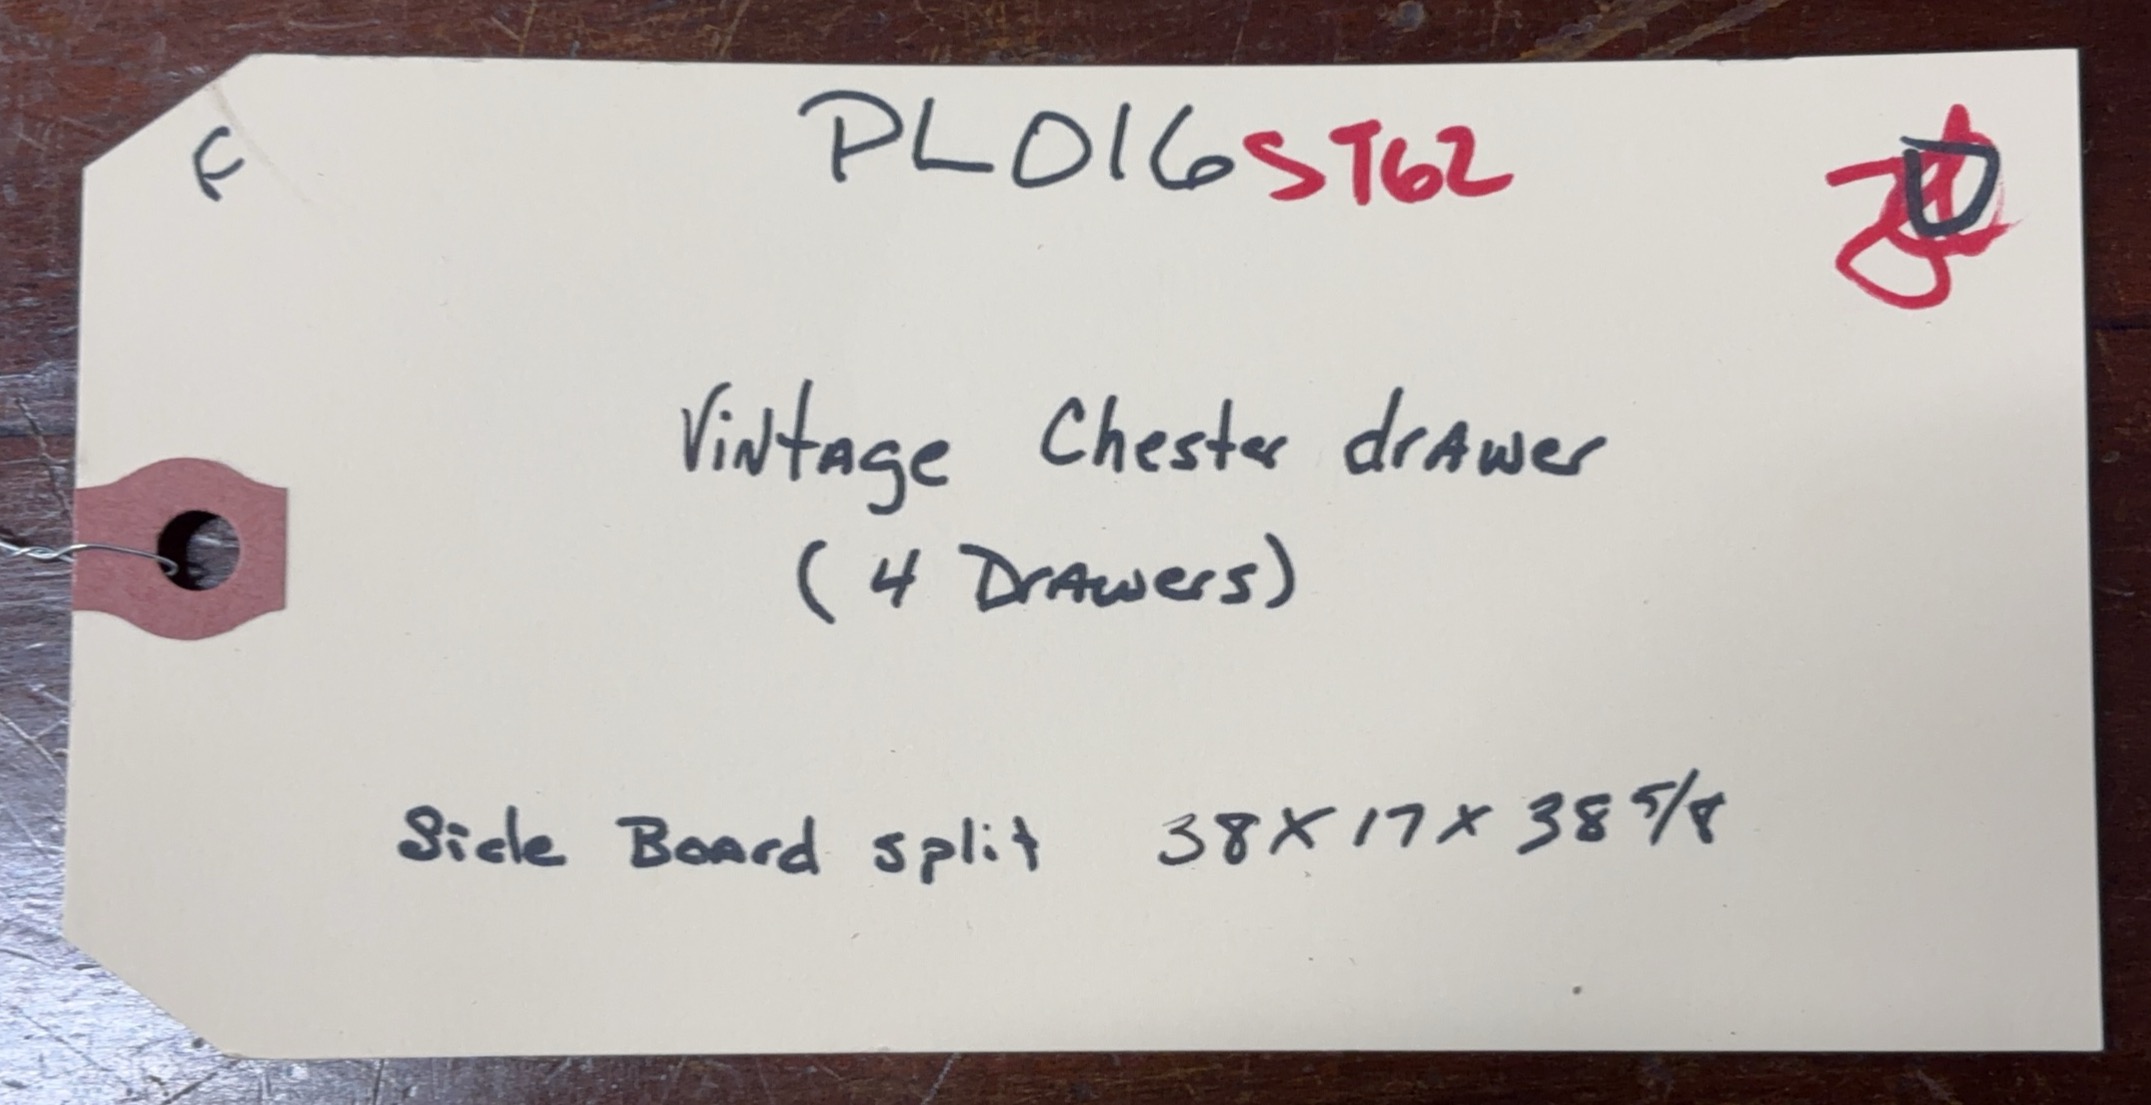 F
PL016 ST62
Vintage Chester drawer
(4 Drawers)
Side Board split 38 X 17 X 38 5/8